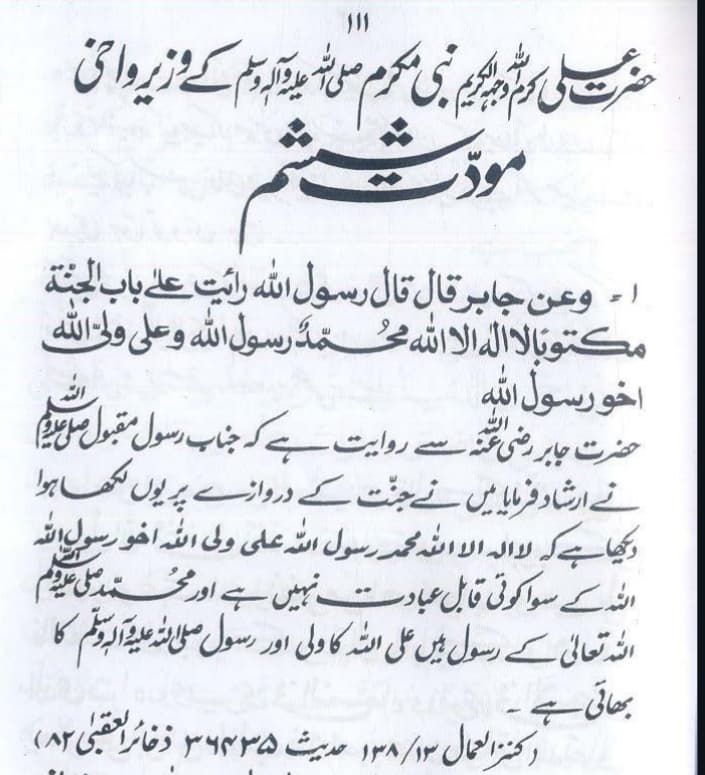 ۱۱۱
حضرت علی کرم اللہ وجہہ الکریم نبی مکرم صلی اللہ علیہ وآلہ وسلم کے وزیر و اخی
مودّت ششم
۱۔ وعن جابر قال قال رسول اللہ رائیت علےٰ باب الجنّة
مکتوبًا لا الٰہ الا اللہ محمّدٌ رسول اللہ وعلی ولیّ اللہ
اخو رسول اللہ
حضرت جابر رضی اللہ عنہ سے روایت ہے کہ جناب رسول مقبول صلی اللہ علیہ وسلم
نے ارشاد فرمایا میں نے جنّت کے دروازے پر یوں لکھا ہوا
دیکھا ہے کہ لا الہ الا اللہ محمد رسول اللہ علی ولی اللہ اخو رسول اللہ
اللہ کے سوا کوئی قابل عبادت نہیں ہے اور محمّد صلی اللہ علیہ وسلم
اللہ تعالیٰ کے رسول ہیں علی اللہ کا ولی اور رسول صلی اللہ علیہ وآلہ وسلّم کا
بھائی ہے۔
(کنز العمال ۱۳/۱۳۸ حدیث ۳۶۴۳۵ ذخائر العقبیٰ ۸۲)